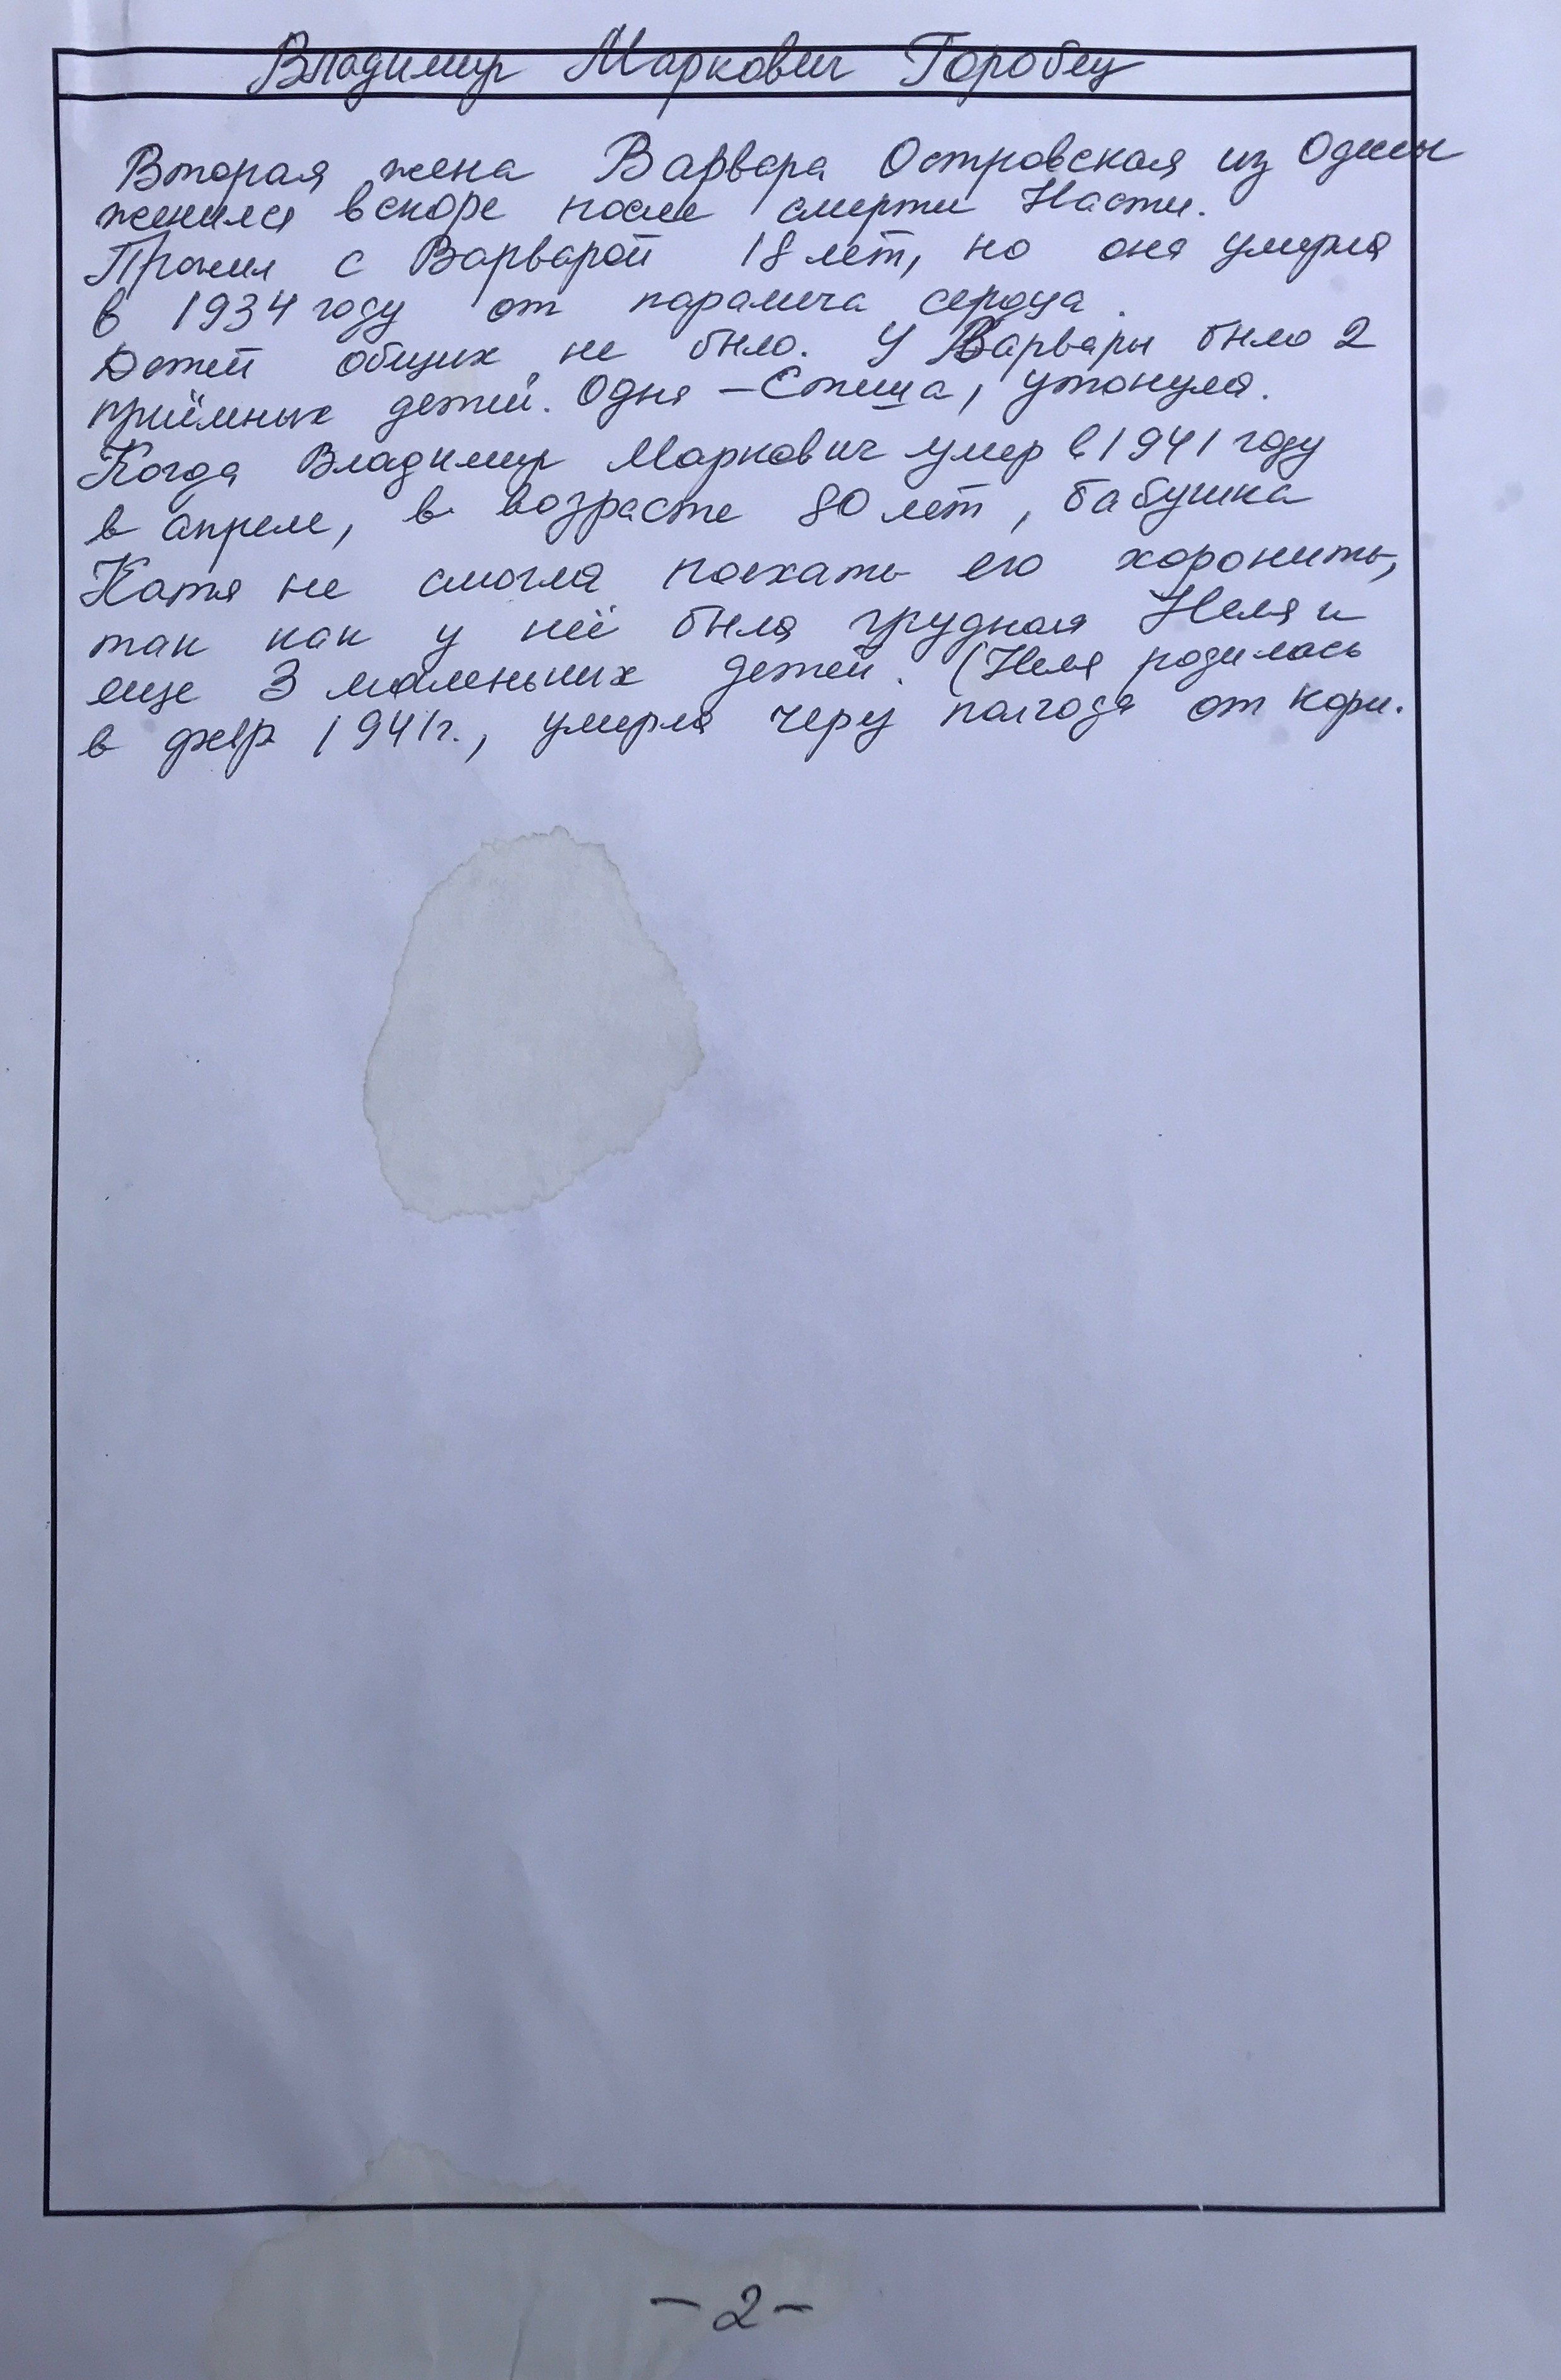 Владимир Маркович Горобец
Вторая жена Варвара Островская из Одессы
женился вскоре после смерти Насти.
Прожил с Варварой 18 лет, но она умерла
в 1934 году от паралича сердца.
Детей общих не было. У Варвары было 2
приёмных детей. Одна – Стеша, утонула.
Когда Владимир Маркович умер в 1941 году
в апреле, в возрасте 80 лет, бабушка
Катя не смогла поехать его хоронить,
так как у неё была грудная Неля и
еще 3 маленьких детей. (Неля родилась
в февр 1941г., умерла через полгода от кори.
- 2 -